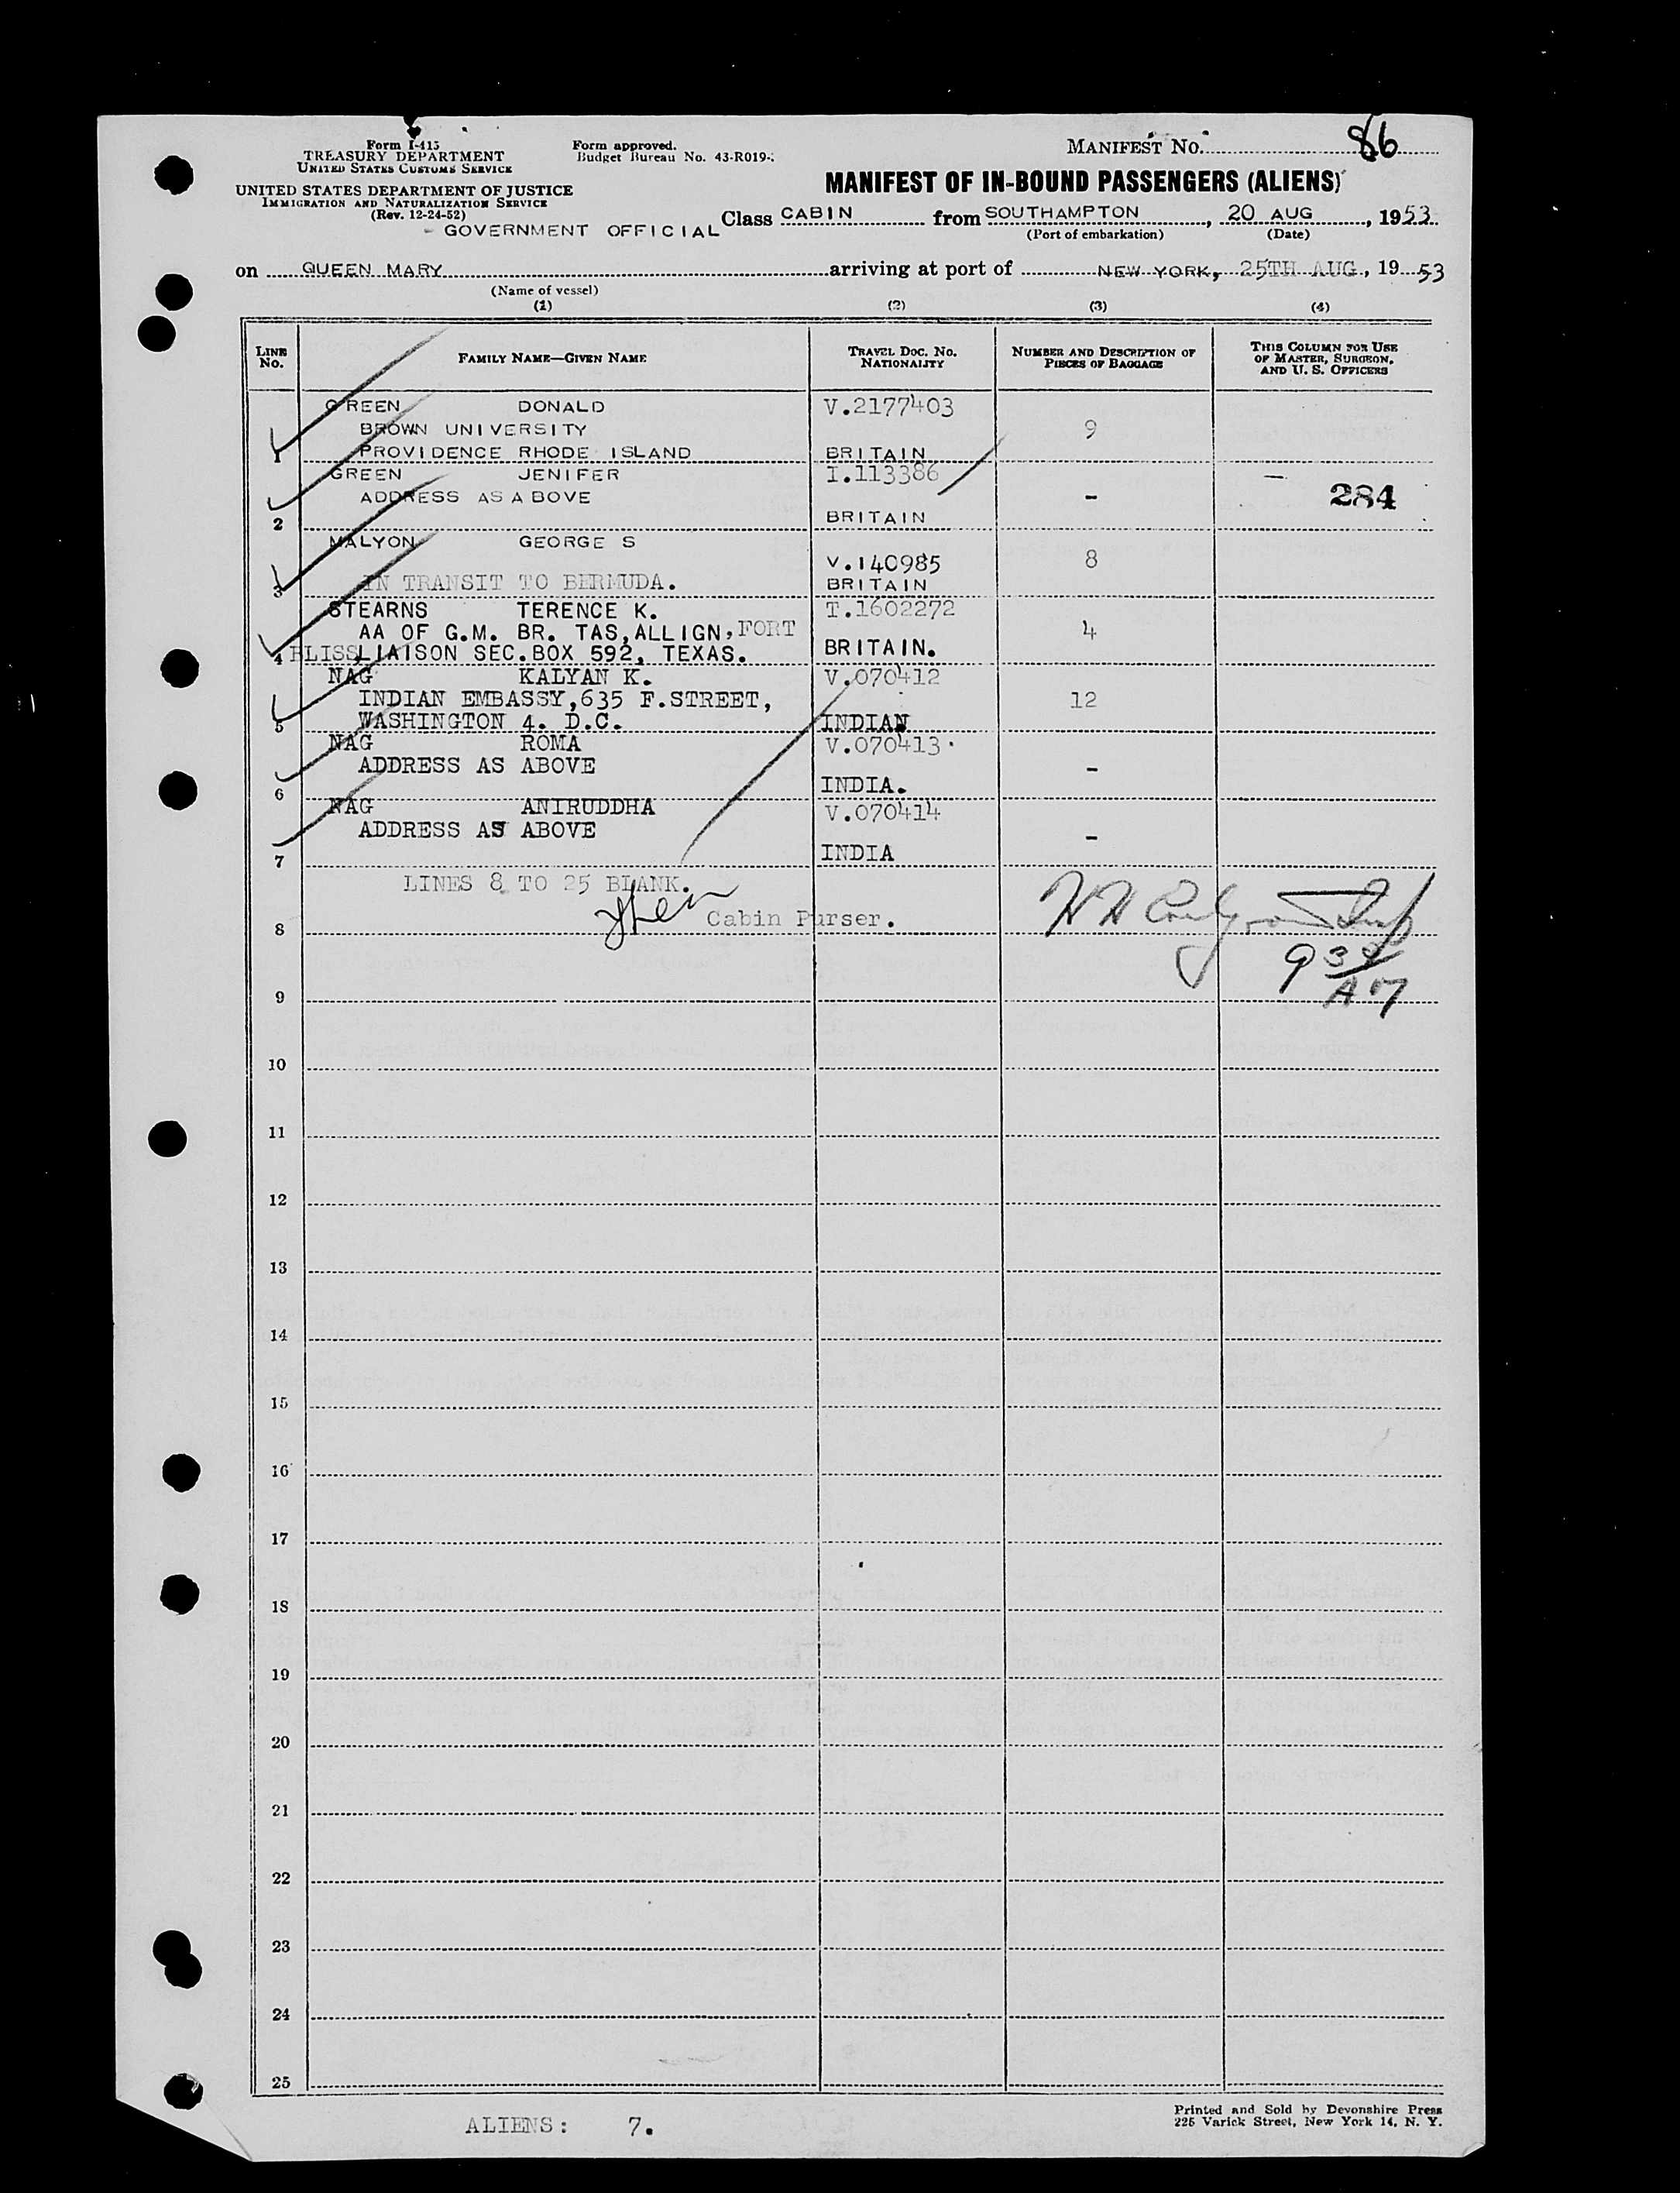 Form I-415
TREASURY DEPARTMENT
UNITED STATES CUSTOMS SERVICE
UNITED STATES DEPARTMENT OF JUSTICE
IMMIGRATION AND NATURALIZATION SERVICE
(Rev. 12-24-52)
Form approved.
Budget Bureau No. 43-R019-
MANIFEST NO. 86
MANIFEST OF IN-BOUND PASSENGERS (ALIENS)
- GOVERNMENT OFFICIAL Class CABIN from SOUTHAMPTON, 20 AUG, 1953
(Port of embarkation) (Date)
on QUEEN MARY arriving at port of NEW YORK, 25TH AUG, 1953
(Name of vessel)
(1) (2) (3) (4)
LINE NO. FAMILY NAME—GIVEN NAME TRAVEL DOC. NO. NATIONALITY NUMBER AND DESCRIPTION OF PIECES OF BAGGAGE THIS COLUMN FOR USE OF MASTER, SURGEON, AND U. S. OFFICERS
GREEN DONALD V.2177403
BROWN UNIVERSITY 9
1 PROVIDENCE RHODE ISLAND BRITAIN
GREEN JENIFER I.113386 —
ADDRESS AS A BOVE - 284
2 BRITAIN
MALYON GEORGE S
V.140985 8
3 IN TRANSIT TO BERMUDA. BRITAIN
STEARNS TERENCE K. T.1602272
AA OF G.M. BR. TAS,ALLIGN,FORT 4
4 BLISS LIAISON SEC.BOX 592, TEXAS. BRITAIN.
NAG KALYAN K. V.070412
INDIAN EMBASSY,635 F.STREET, 12
5 WASHINGTON 4. D.C. INDIAN
NAG ROMA V.070413.
ADDRESS AS ABOVE -
6 INDIA.
NAG ANIRUDDHA V.070414
ADDRESS AS ABOVE -
7 INDIA
LINES 8 TO 25 BLANK.
8 Cabin Purser.
9 9 AM
10
11
12
13
14
15
16
17
18
19
20
21
22
23
24
25
ALIENS: 7.
Printed and Sold by Devonshire Press
225 Varick Street, New York 14, N. Y.